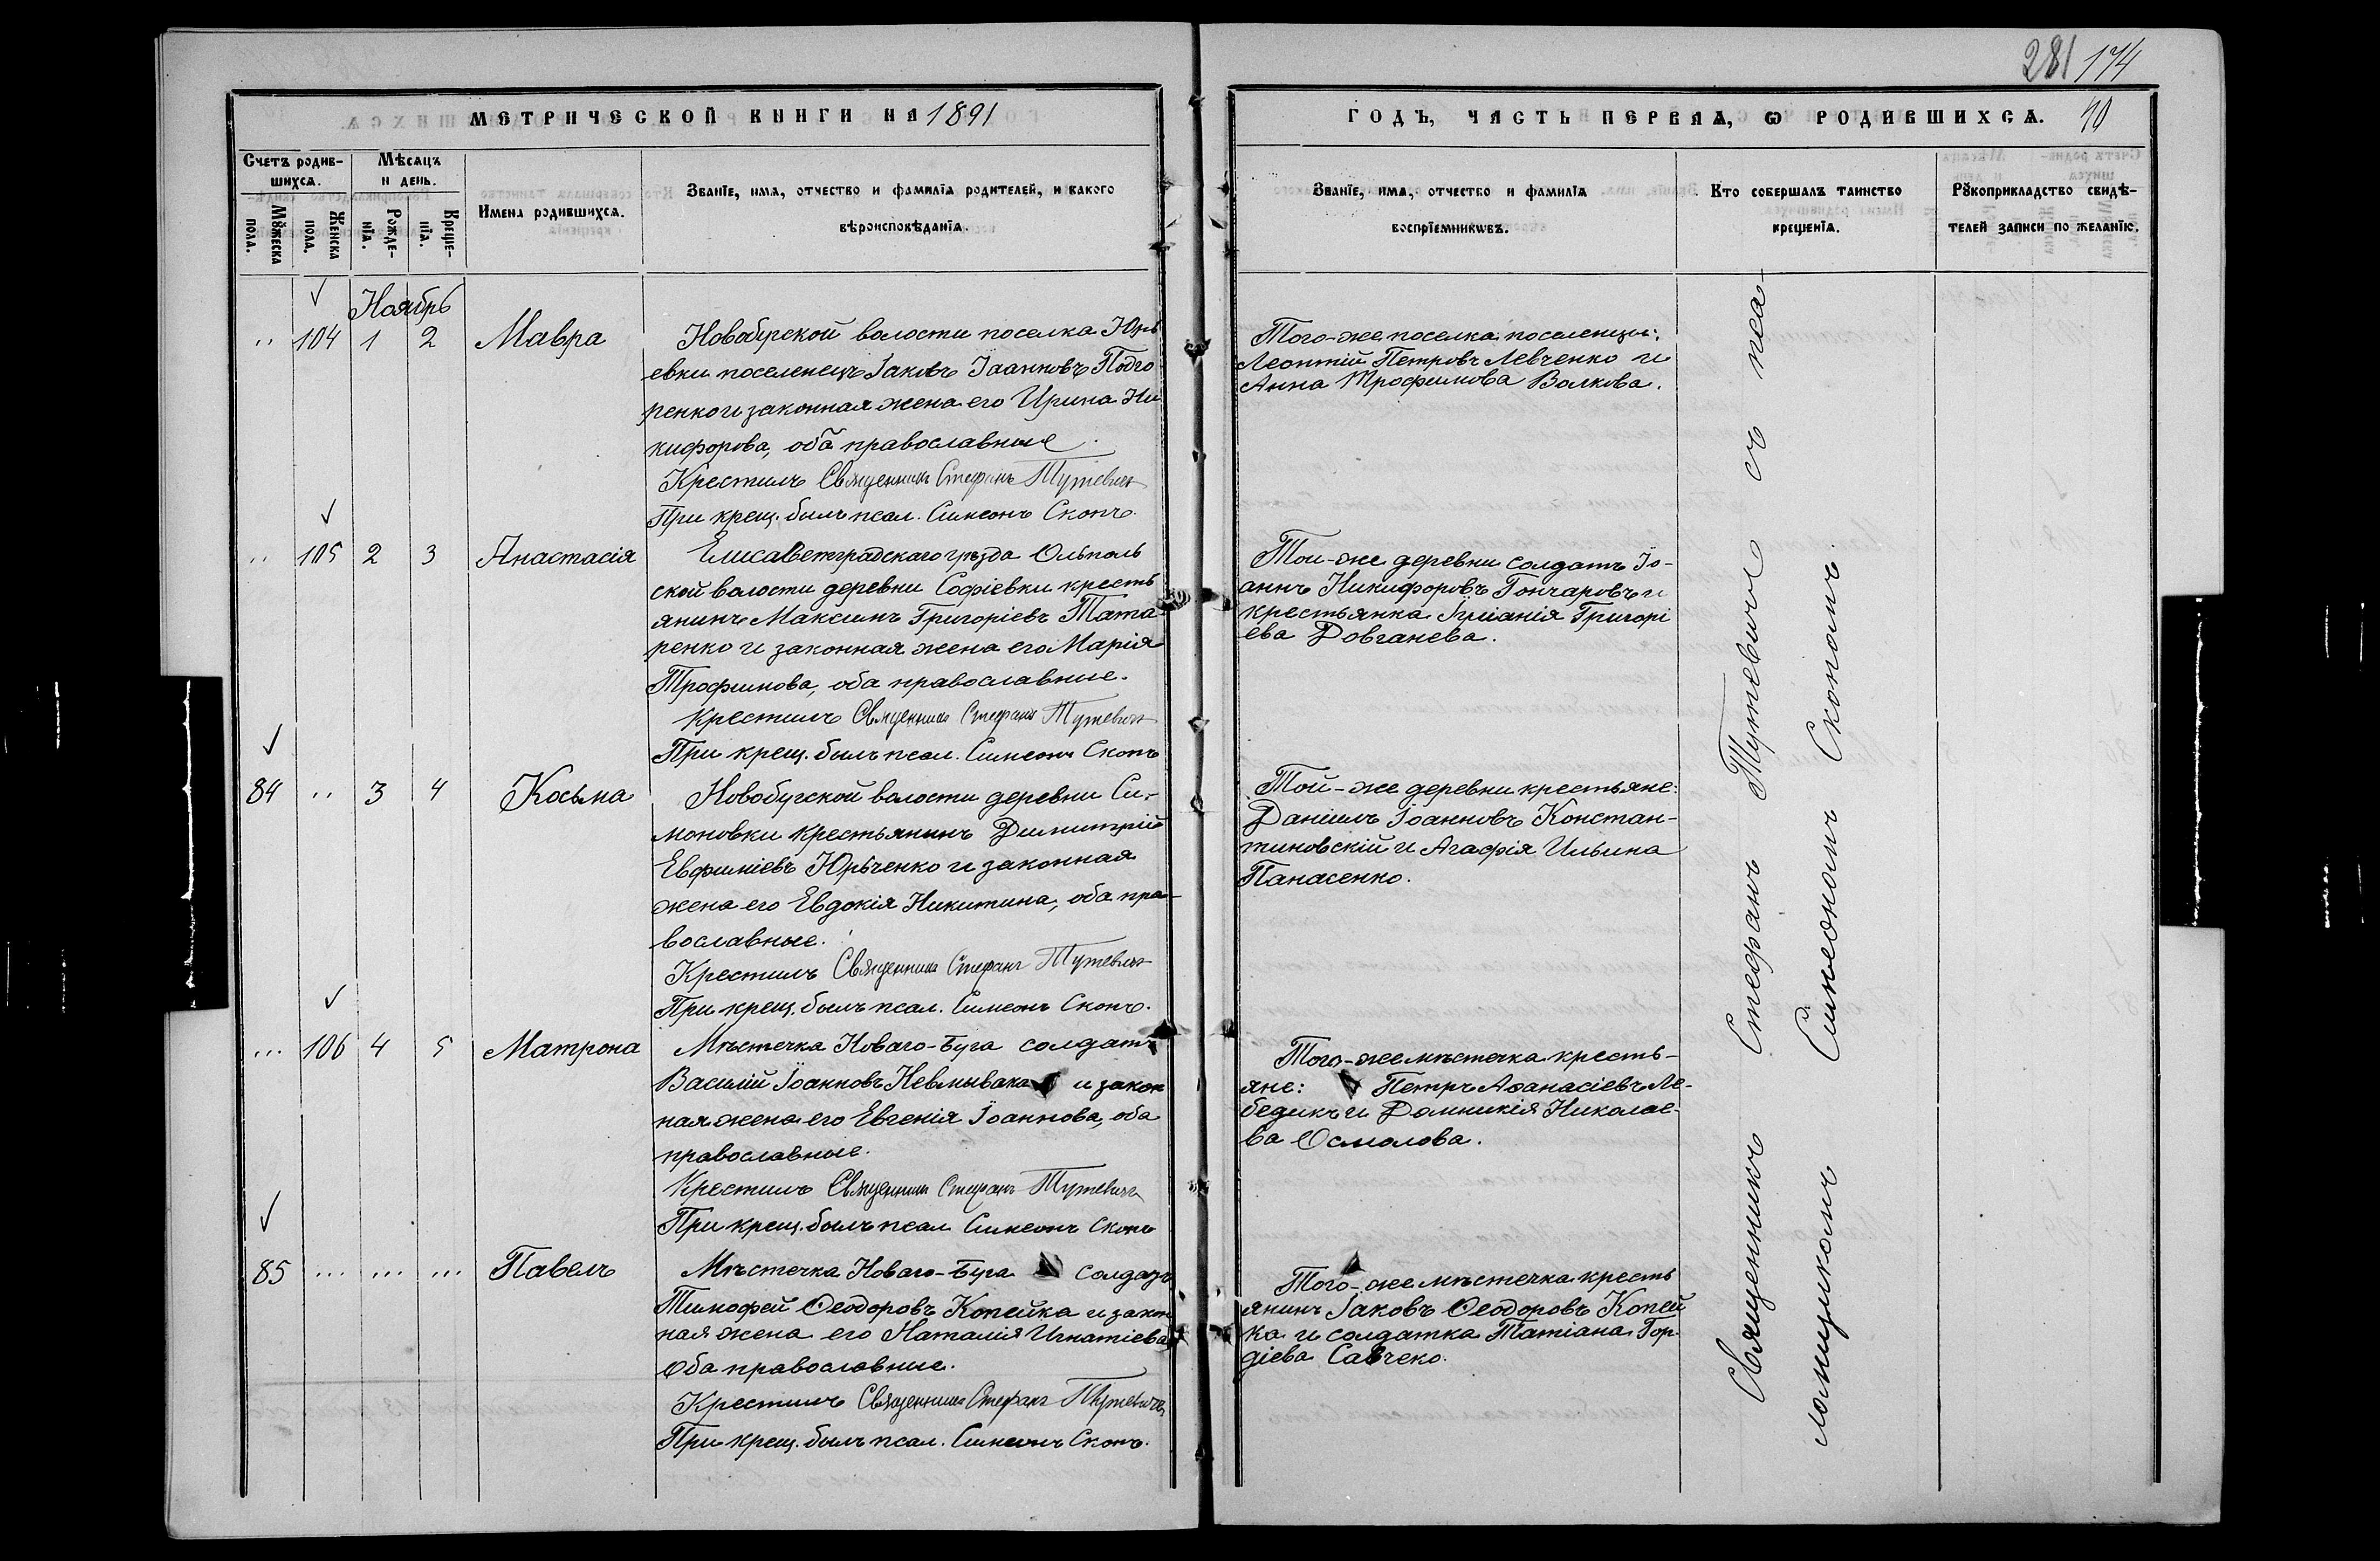 281 174
МЕТРИЧЕСКОЙ КНИГИ НА 1891
ГОДЪ, ЧАСТЬ ПЕРВАЯ, Ѡ РОДИВШИХСѦ. 40
Счетъ родив-
шихсѧ.
Мѣсѧцъ
и день.
Мꙋжеска
пола.
Женска
пола.
Рожде-
нїѧ.
Креще-
нїѧ.
Имена родившихсѧ.
Званїе, имѧ, отчество и фамилїѧ родителей, и какого
вѣроисповѣданїѧ.
Званїе, имѧ, отчество и фамилїѧ
воспрїемникѡвъ.
Кто совершалъ таинство
крещенїѧ.
Рꙋкоприкладство свидѣ-
телей записи по желанїю.
Ноябрь
" 104 1 2 Мавра
Новобугской волости поселка Юрь
евки поселенецъ Іаковъ Іоанновъ Подго
ренко и законная жена его Ирина Ни
кифорова, оба православные.
Крестилъ Священникъ Стефанъ Тутевичъ
При крещ. былъ псал. Симеонъ Скопъ.
Того-же поселка поселенцы:
Леонтій Петровъ Левченко и
Анна Трофимова Волкова.
" 105 2 3 Анастасія
Елисаветградскаго уѣзда Ольполь
ской волости деревни Софіевки кресть
янинъ Максимъ Григоріевъ Тата
ренко и законная жена его Марія
Трофимова, оба православные.
Крестилъ Священникъ Стефанъ Тутевичъ
При крещ. былъ псал. Симеонъ Скопъ
Тои-же деревни солдатъ Іо-
аннъ Никифоровъ Гончаровъ и
крестьянка Григорі
ева Довганева.
84 " 3 4 Косьма
Новобугской волости деревни Си-
моновки крестьянинъ Димитрій
Евфиміевъ Юрьченко и законная
жена его Евдокія Никитина, оба пра-
вославные.
Крестилъ Священникъ Стефанъ Тутевичъ
При крещ. былъ псал. Симеонъ Скопъ.
Той-же деревни крестьяне:
Даніилъ Іоанновъ Констан-
тиновскій и Агафія Ильина
Панасенко.
... 106 4 5 Матрона
Мѣстечка Новаго-Буга солдатъ
Василій Іоанновъ Невмывака и закон
ная жена его Евгенія Іоаннова, оба
православные.
Крестилъ Священникъ Стефанъ Тутевичъ
При крещ. былъ псал Симеонъ Скопъ
Того-же мѣстечка кресть-
яне: Петръ Аѳанасіевъ Ле-
бедикъ и Домникія Николае-
ва Осмолова.
85 ... ... ... Павелъ
Мѣстечка Новаго-Буга солдатъ
Тимофей Ѳеодоровъ Копейка и закон
ная жена его Наталія Игнатіева
оба православные.
Крестилъ Священникъ Стефанъ Тутевичъ
При крещ. былъ псал. Симеонъ Скопъ.
Того-же мѣстечка кресть
янинъ Іаковъ Ѳеодоровъ Копей
ка и солдатка Татіана Гор
діева Савчеко.
Священникъ Стефанъ Тутевичъ съ пса-
ломщикомъ Симеономъ Скопомъ.